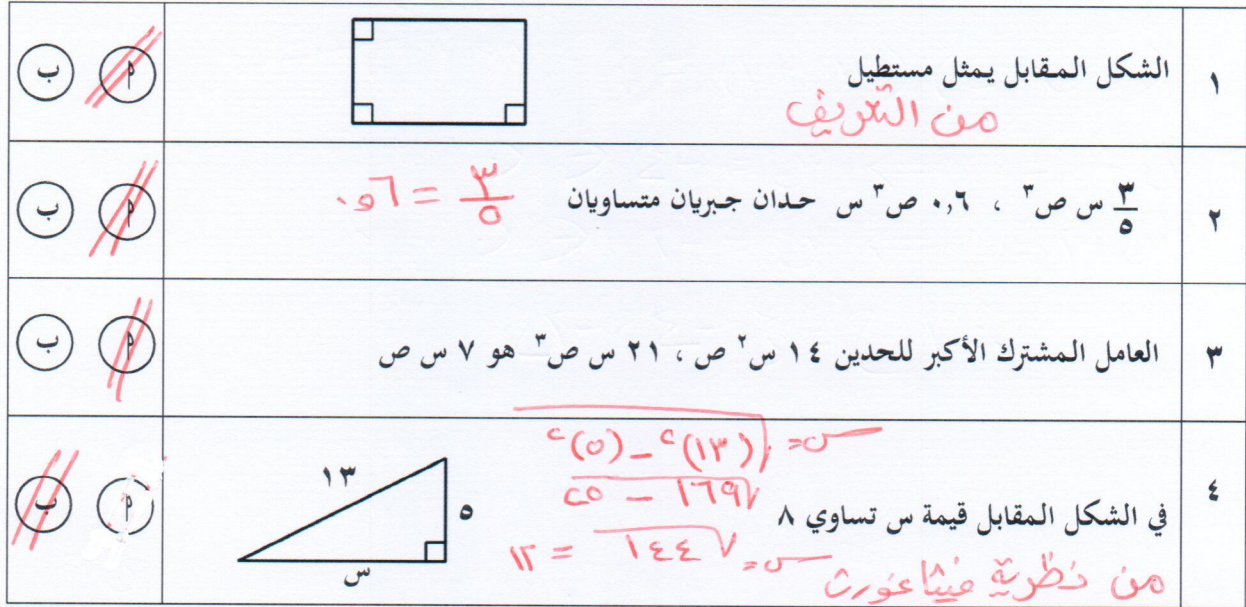 ١ الشكل المقابل يمثل مستطيل أ ب
من التعريف
٢ ٣/٥ س ص٣ ، ٠,٦ ص٣ س حدان جبريان متساويان ٣/٥ = ٠,٦ أ ب
٣ العامل المشترك الأكبر للحدين ١٤ س٢ ص ، ٢١ س ص٣ هو ٧ س ص أ ب
س = √(١٣)٢ – (٥)٢
√١٦٩ – ٢٥
٤ في الشكل المقابل قيمة س تساوي ٨ ١٣ ٥ س أ ب
س = √١٤٤ = ١٢
من نظرية فيثاغورث